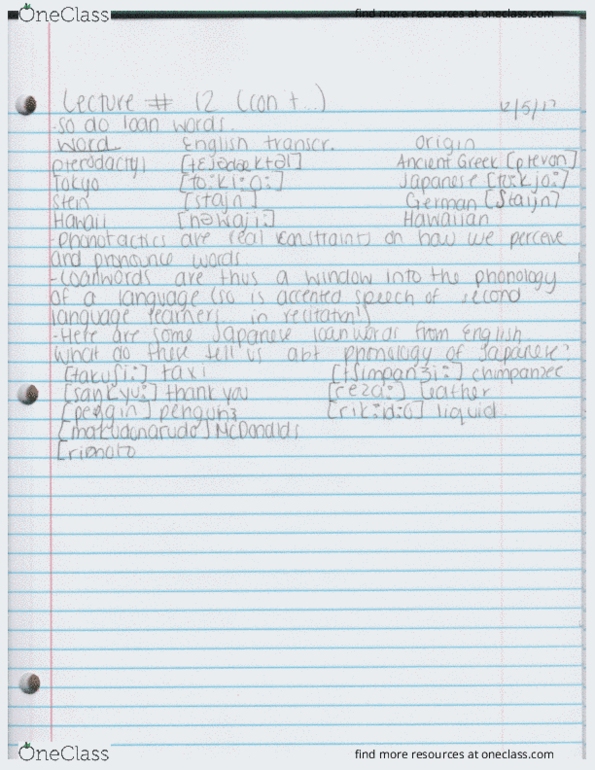 OneClass find more resources at oneclass.com
Lecture # 12 (con t...) 12/5/17
-so do loan words.
word English transcr. Origin
pterodactyl [tɛɹədæktəl] Ancient Greek [pteron]
Tokyo [to:ki:o:] Japanese [to:kjo:]
Stein [stajn] German [Stajn]
Hawaii [həwaji:] Hawaiian
-Phonotactics are real constraints on how we perceive
and pronounce words
-Loanwords are thus a window into the phonology
of a language (so is accented speech of second
language learners... in recitation!)
-Here are some Japanese loanwords from English
What do these tell us abt phonology of Japanese?
[takuʃi:] taxi [tʃimpanʒi:] chimpanzee
[sankyu:] thank you [reza:] leather
penguins liquid
[makudonarudo] McDonalds
OneClass find more resources at oneclass.com